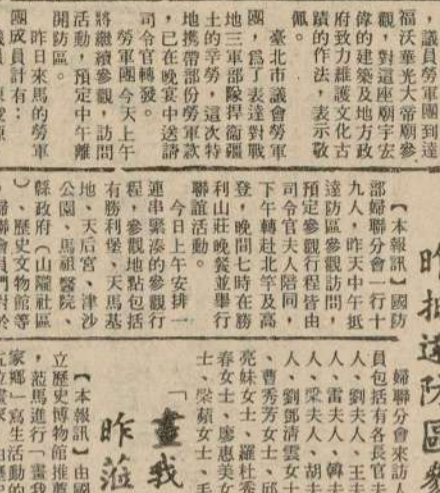 ，議員勞軍團到達
福沃華光大帝廟參
觀，對這座廟宇宏
偉的建築及地方政
府致力維護文化古
蹟的作法，表示敬
佩。
臺北市議會勞軍
團，爲了表達對戰
地三軍部隊捍衛疆
土的辛勞，這次特
地携帶部份勞軍款
，已在晚宴中送請
司令官轉發。
勞軍團今天上午
將繼續參觀，訪問
活動，預定中午離
開防區。
昨日來馬的勞軍
團成員計有：
昨抵達防區參
【本報訊】國防
部婦聯分會一行十
九人，昨天中午抵
達防區參觀訪問，
預定參觀行程皆由
司令官夫人陪同，
下午轉赴北竿及高
登，晚間七時在勝
利山莊晚餐並舉行
聯誼活動。
今日上午安排一
連串緊湊的參觀行
程，參觀地點包括
有勝利堡、天馬基
地、天后宮、津沙
公園、馬祖醫院、
縣政府（山隴社區
）、歷史文物館等
。婦聯會員們對於
婦聯分會來訪人
員包括有各長官夫
人、劉夫人、王夫
人、雷夫人、韓夫
人、梁夫人、胡夫
人、劉鄧清雲女士
、曹秀芳女士、邱
亮妹女士、羅杜秀
春女士、廖惠美女
士、梁蘋女士、毛
「畫我
昨蒞
【本報訊】由國
立歷史博物館推薦
，蒞馬進行「畫我
家鄉」寫生活動的